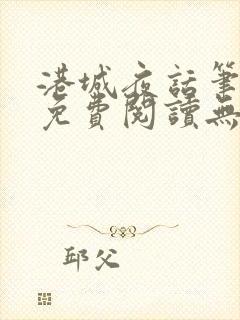 港城夜話筆
免費閱讀無
邱父